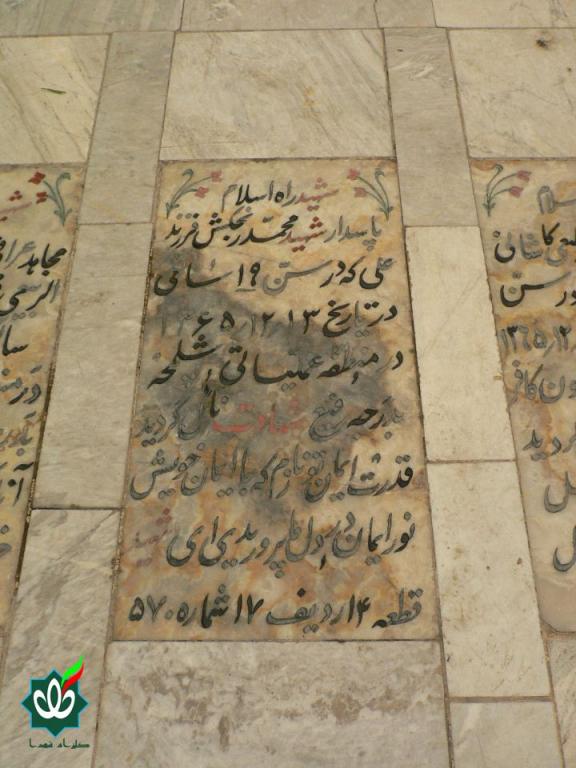 شهید راه اسلام
پاسدار شهید محمد رنجکش فرزند
علی که در سن ۱۹ سالگی
در تاریخ ۱۳/۱۲/۱۳۶۵
در منطقه عملیاتی شلمچه
بدرجه رفیع شهادت نائل گردید
قدرت ایمان تو نازم که با ایمان خویش
نور ایمان در دل ما پروریدی ای شهید
قطعه ۴ ردیف ۱۷ شماره ۵۷۰
مجاهد عراقی
در من
اسلام
کاشانی
در سن
۱۳۶۵/۱۲
گردید
گلزار شهدا